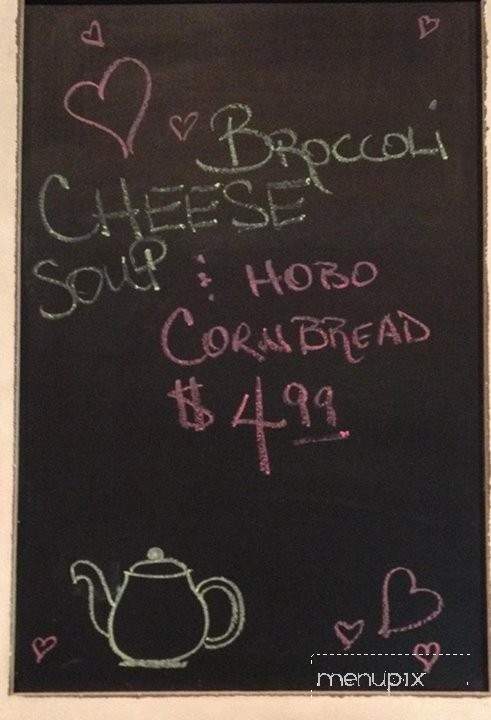 BROCCOLI
CHEESE
SOUP & HOBO
CORNBREAD
$4.99
menupix